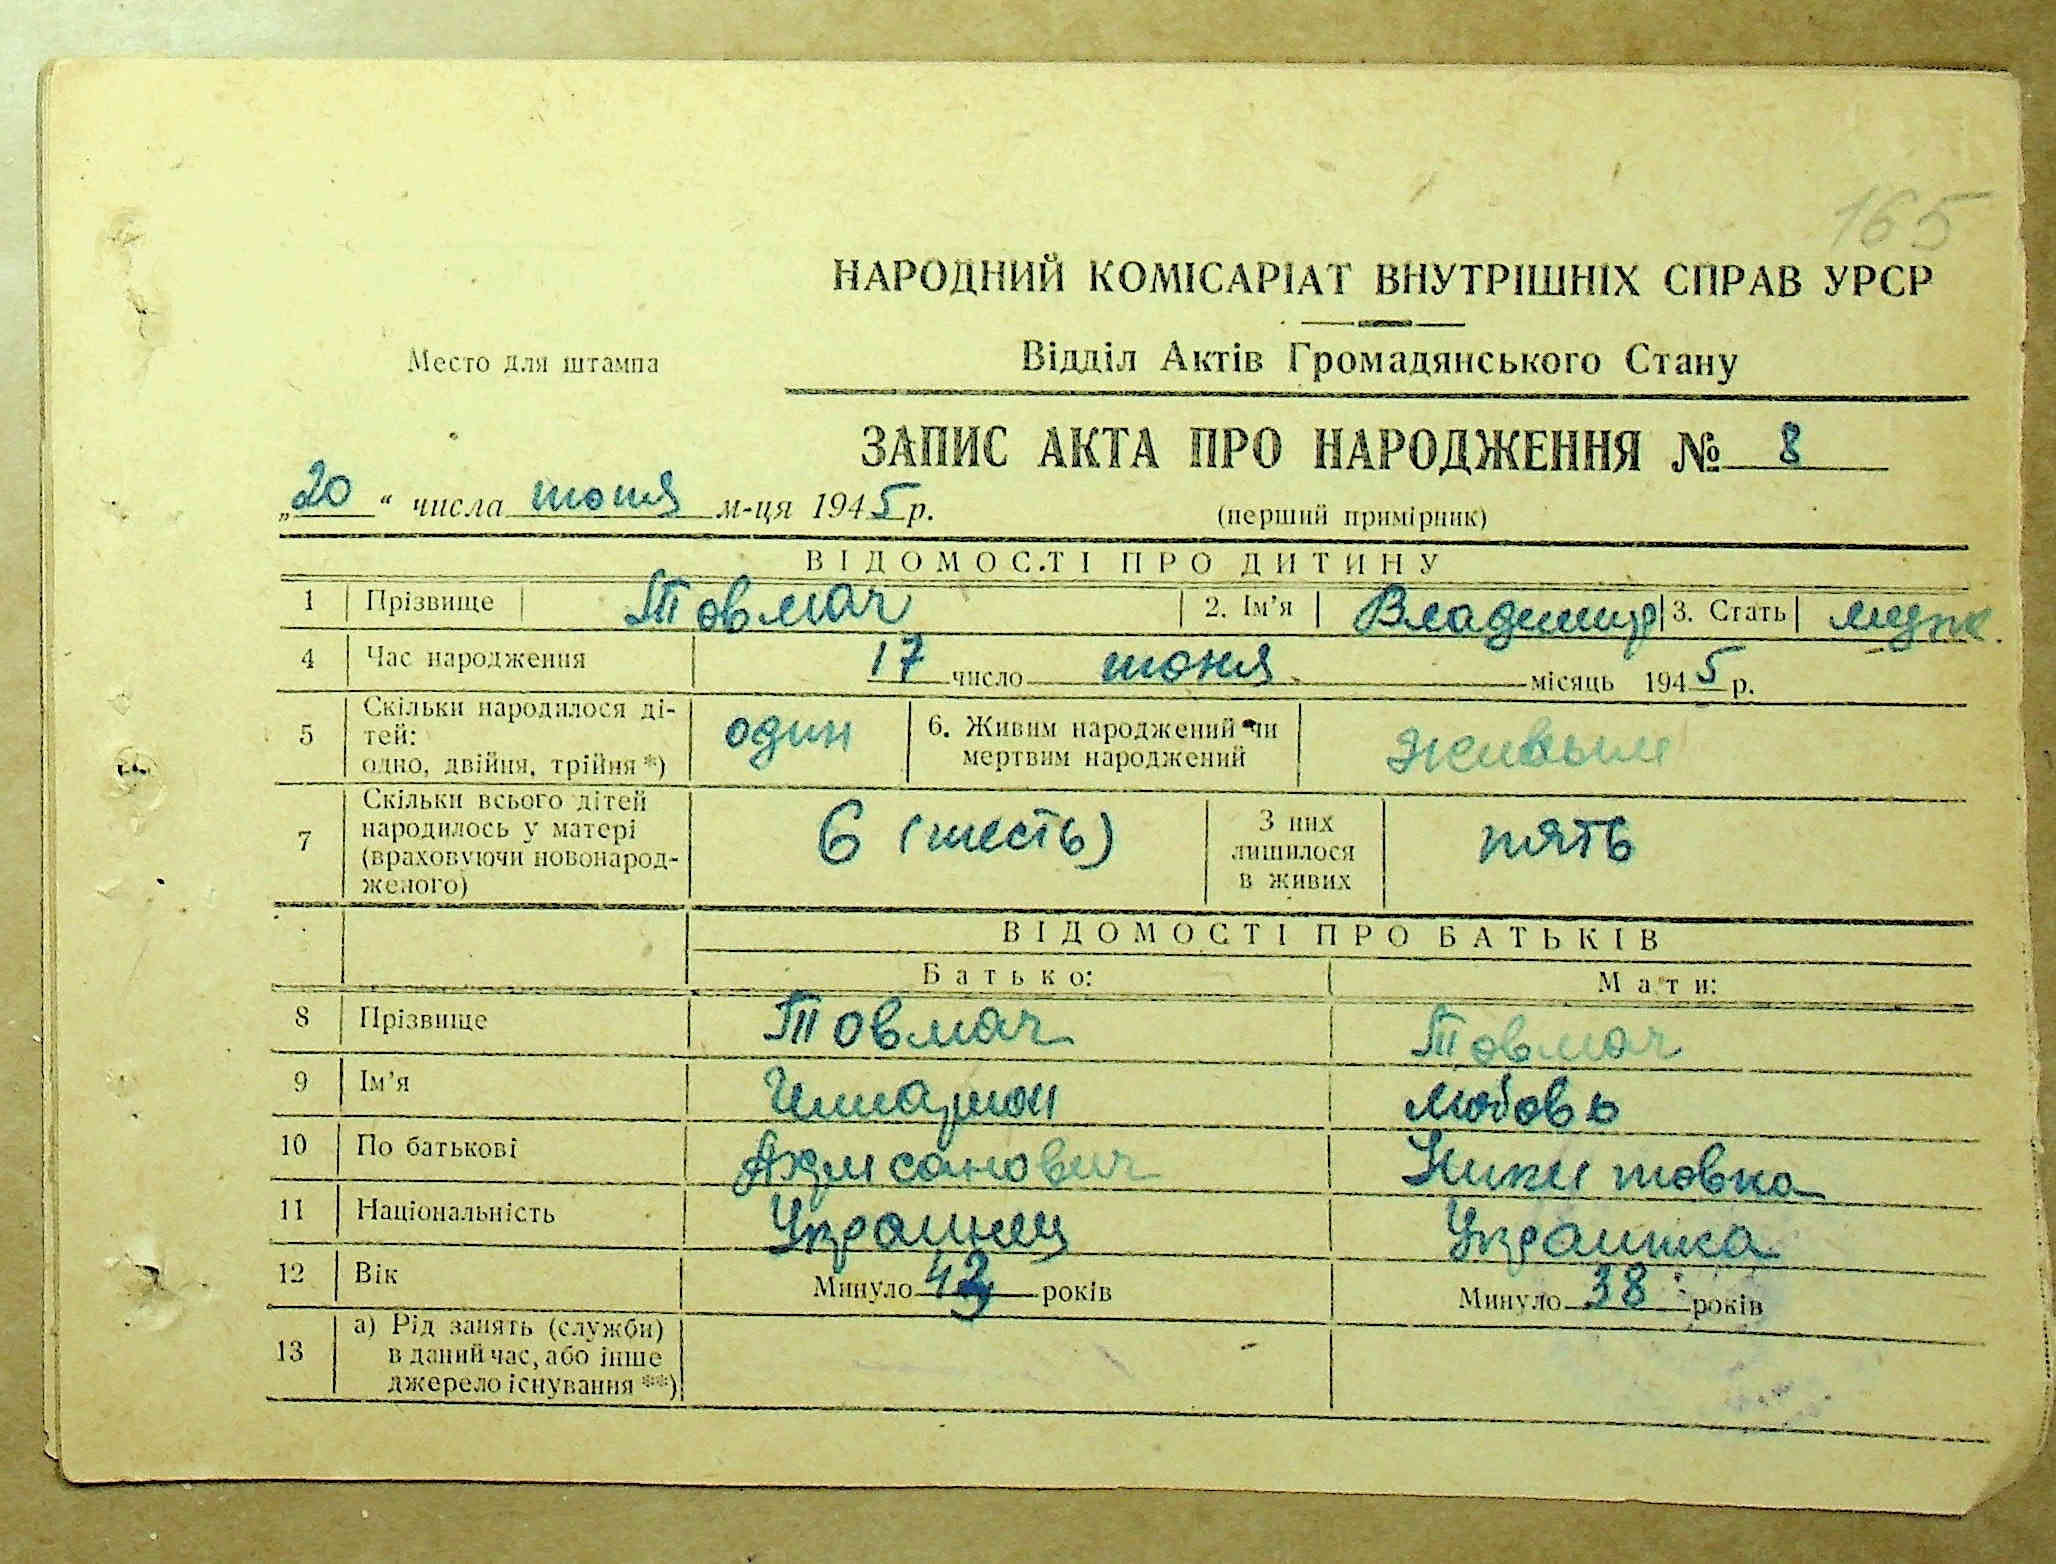 165
НАРОДНИЙ КОМІСАРІАТ ВНУТРІШНІХ СПРАВ УРСР
Место для штампа
Відділ Актів Громадянського Стану
ЗАПИС АКТА ПРО НАРОДЖЕННЯ № 8
„20“ числа июня м-ця 1945 р.
(перший примірник)
ВІДОМОСТІ ПРО ДИТИНУ
1 Прізвище Товмач 2. Ім'я Владимир 3. Стать муж.
4 Час народження 17 число июня місяць 1945 р.
5 Скільки народилося ді-
тей:
одно, двійня, трійня *) один 6. Живим народжений чи
мертвим народжений живым
7 Скільки всього дітей
народилось у матері
(враховуючи новонарод-
женого) 6 (шесть) З них
лишилося
в живих пять
ВІДОМОСТІ ПРО БАТЬКІВ
Батько: Мати:
8 Прізвище Товмач Товмач
9 Ім'я Любовь
10 По батькові Никитовна
11 Національність Украинец Украинка
12 Вік Минуло 43 років Минуло 38 років
13 а) Рід занять (служби)
в даний час, або інше
джерело існування **)